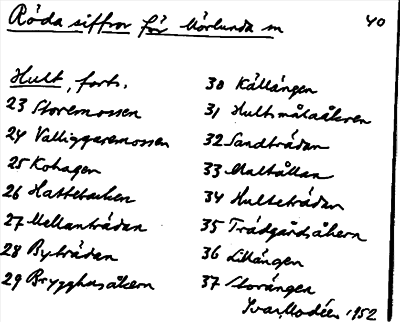 Röda siffror för Mörlunda sn
40
Hult, forts.
23 Storemossen
24 Valliggaremossen
25 Kohagen
26 Hattebacken
27 Mellanträdan
28 Byträdan
29 Brygghusåkern
30 Källängen
31 Hultsmålaåkern
32 Sandträdan
33
34 Hulteträdan
35 Trädgårdsåkern
36 Lillängen
37 Storängen
Ivar Modéer 1952